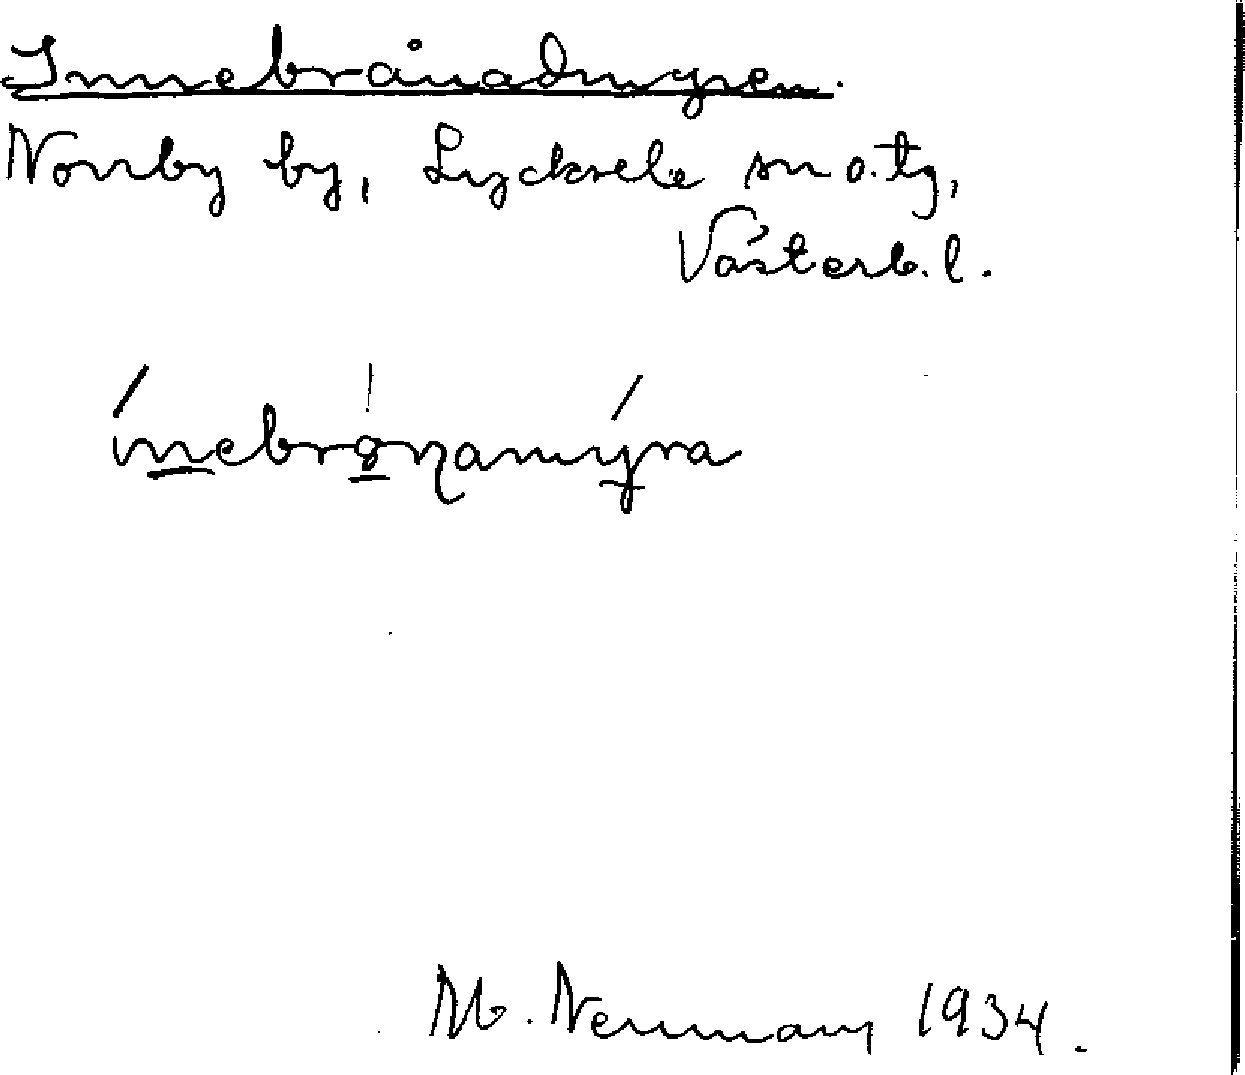 Innebrånadmyren.
Norrby by, Lycksele sn o. tg,
Västerb. l.
ínebro̱ɳamýra
1934.